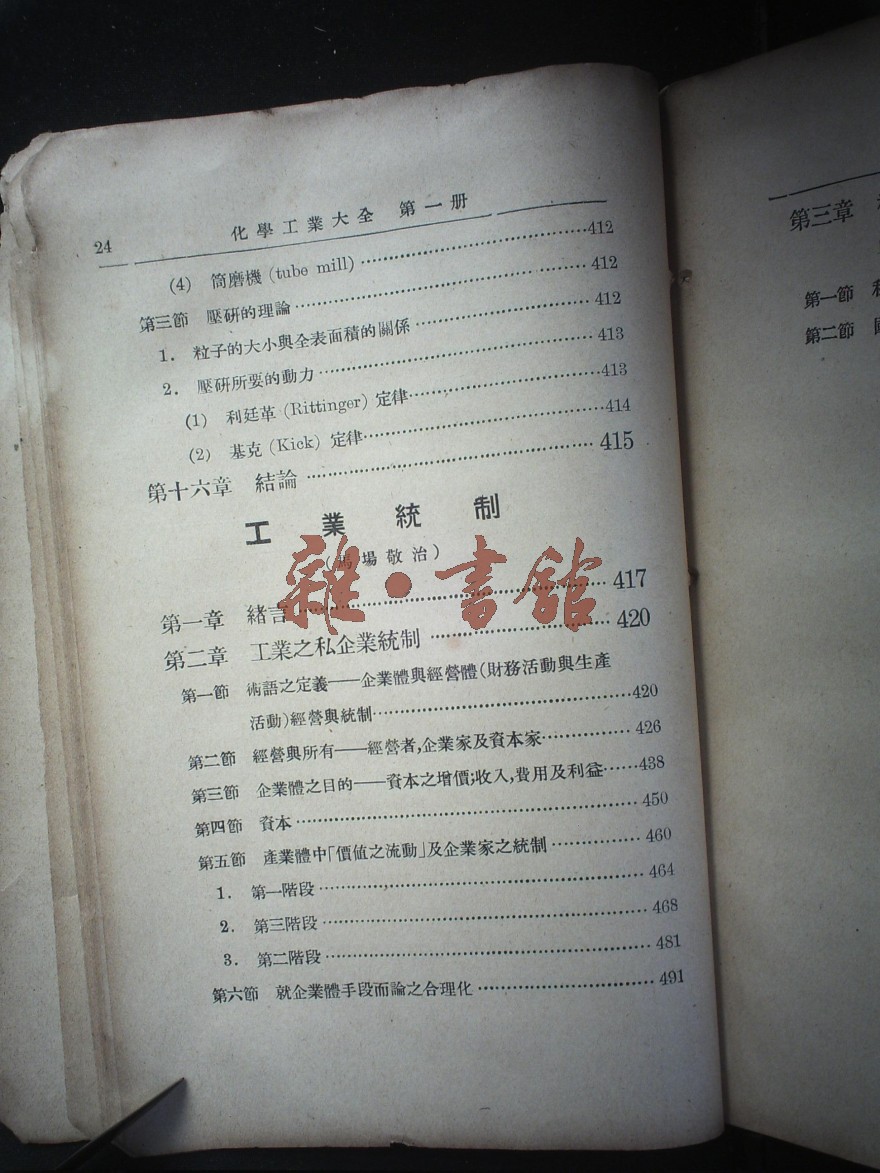 24 化學工業大全 第一册
(4) 筒磨機 (tube mill) 412
第三節 壓研的理論 412
1. 粒子的大小與全表面積的關係 412
2. 壓研所要的動力 413
(1) 利廷革 (Rittinger) 定律 413
(2) 基克 (Kick) 定律 414
第十六章 結論 415
工業統制
(馬場敬治)
雜·書舘
第一章 緒言 417
第二章 工業之私企業統制 420
第一節 術語之定義——企業體與經營體(財務活動與生產
活動)經營與統制 420
第二節 經營與所有——經營者,企業家及資本家 426
第三節 企業體之目的——資本之增價;收入,費用及利益 438
第四節 資本 450
第五節 產業體中「價値之流動」及企業家之統制 460
1. 第一階段 464
2. 第三階段 468
3. 第二階段 481
第六節 就企業體手段而論之合理化 491
第三章
第一節
第二節